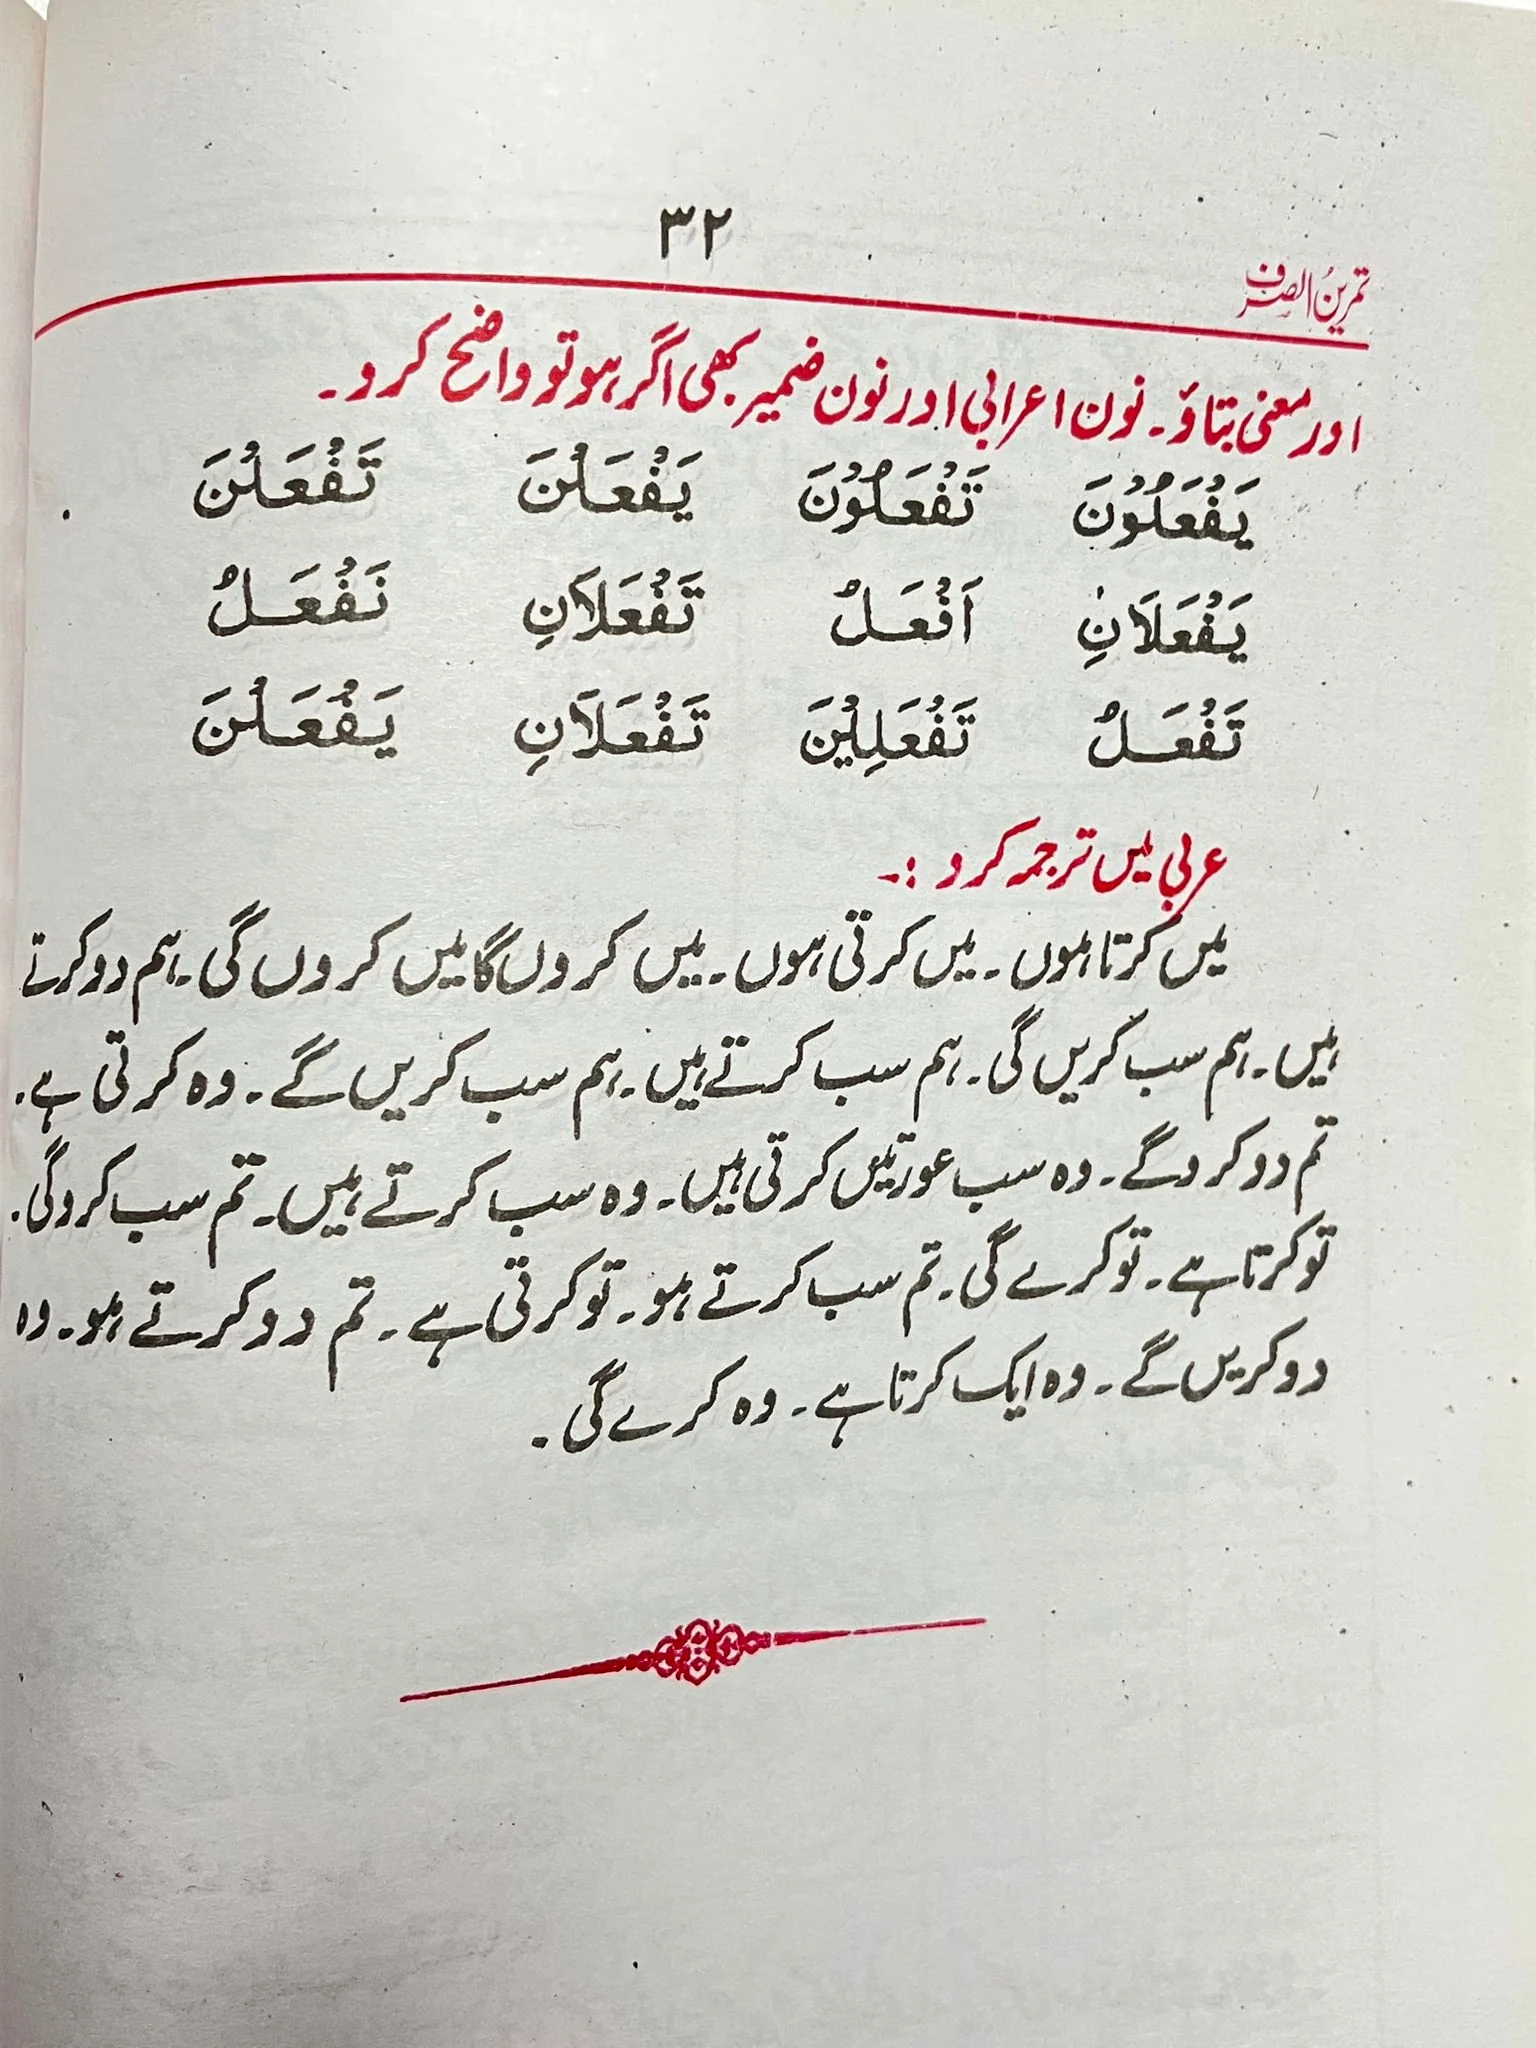 ۳۲
تمرینُ الصرف
اور معنی بتاؤ۔ نون اعرابی اور نون ضمیر بھی اگر ہو تو واضح کرو۔
يَفْعَلُوْنَ تَفْعَلُوْنَ يَفْعَلْنَ تَفْعَلْنَ
يَفْعَلَانِ اَفْعَلُ تَفْعَلَانِ نَفْعَلُ
تَفْعَلُ تَفْعَلِيْنَ تَفْعَلَانِ يَفْعَلْنَ
عربی میں ترجمہ کرو :۔
میں کرتا ہوں۔ میں کرتی ہوں۔ میں کروں گا میں کروں گی۔ ہم دو کرتے
ہیں۔ ہم سب کریں گی۔ ہم سب کرتے ہیں۔ ہم سب کریں گے۔ وہ کرتی ہے۔
تم دو کرو گے۔ وہ سب عورتیں کرتی ہیں۔ وہ سب کرتے ہیں۔ تم سب کرو گی۔
تو کرتا ہے۔ تو کرے گی۔ تم سب کرتے ہو۔ تو کرتی ہے۔ تم دو کرتے ہو۔ وہ
دو کریں گے۔ وہ ایک کرتا ہے۔ وہ کرے گی۔